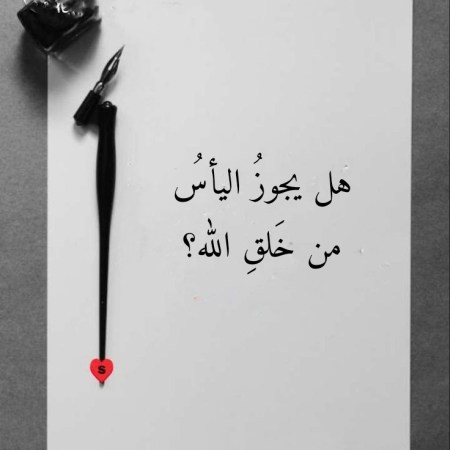 هل يجوزُ اليأسُ
من خَلقِ الله؟
s